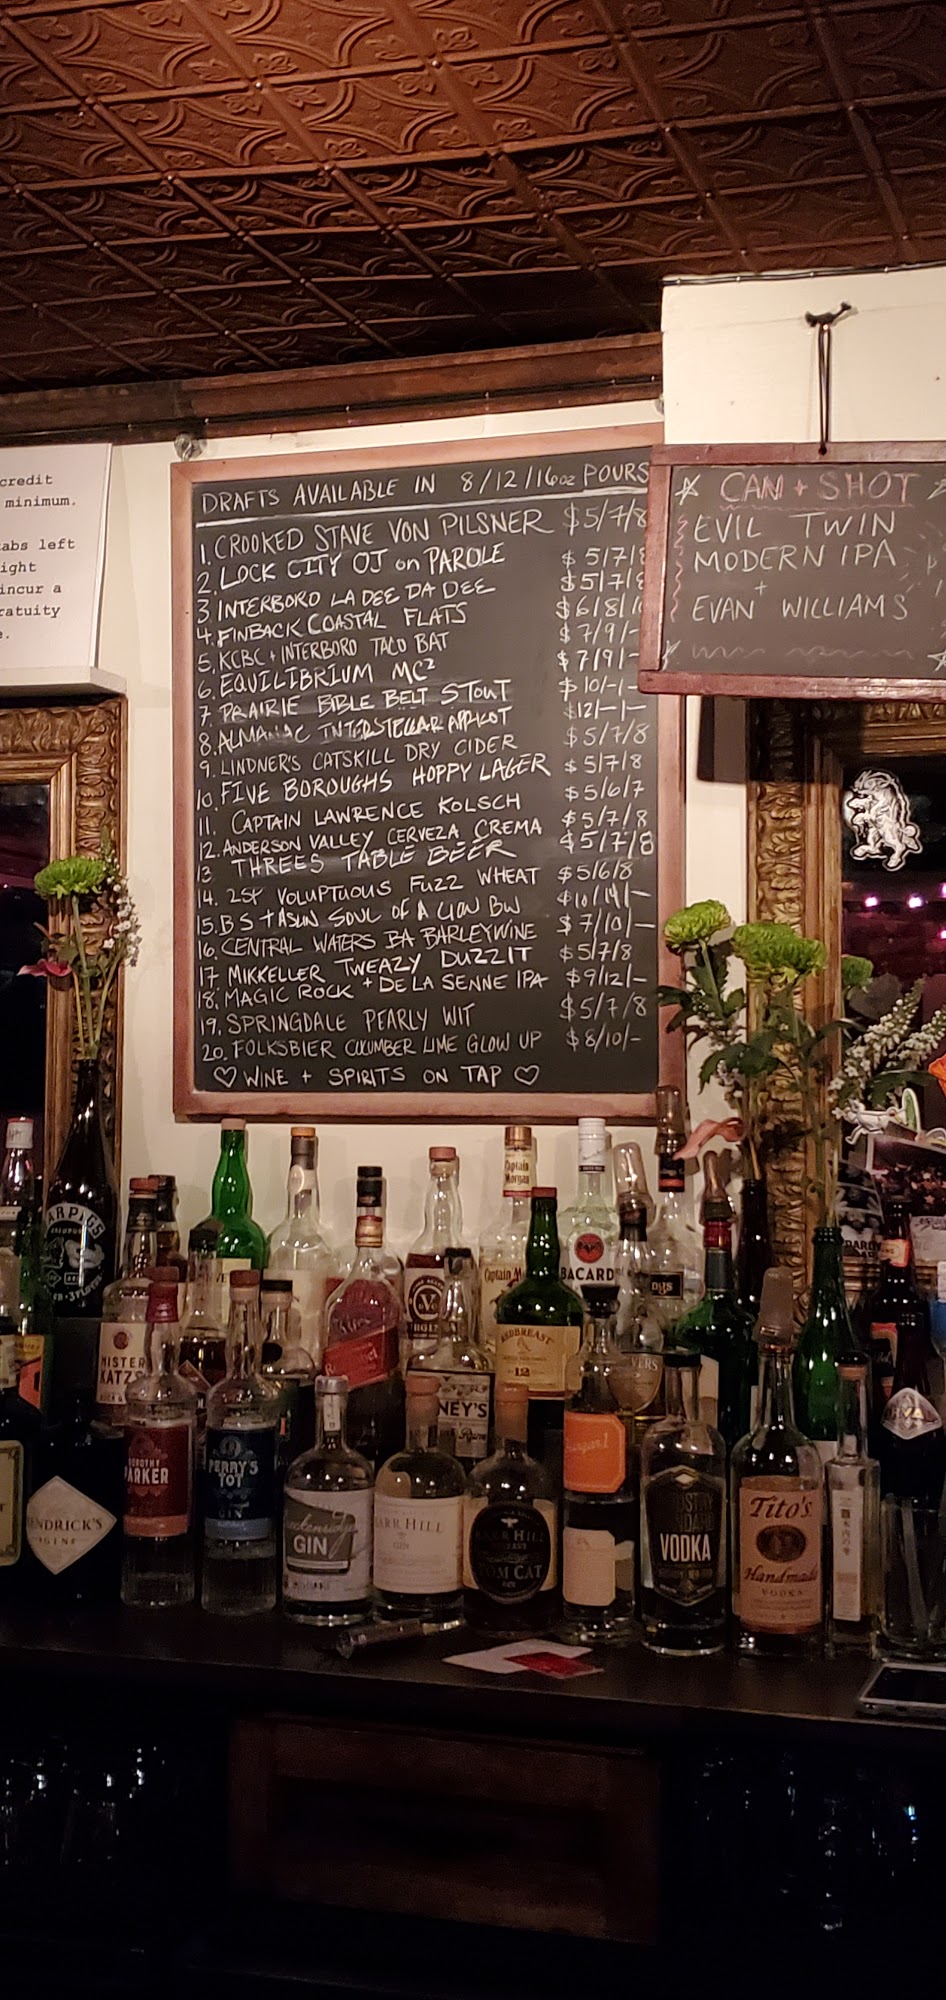 credit
minimum.
abs left
ight
incur a
ratuity
DRAFTS AVAILABLE IN 8/12/16oz POURS
1. CROOKED STAVE VON PILSNER $5/7/8
2. LOCK CITY OJ on PAROLE $5/7/8
3. INTERBORO LA DEE DA DEE $5/7/8
4. FINBACK COASTAL FLATS $6/8/10
5. KCBC + INTERBORO TACO BAT $7/9/-
6. EQUILIBRIUM MC² $7/9/-
7. PRAIRIE BIBLE BELT STOUT $10/-/-
8. ALMANAC INTERSTELLAR APRICOT $12/-/-
9. LINDNER'S CATSKILL DRY CIDER $5/7/8
10. FIVE BOROUGHS HOPPY LAGER $5/7/8
11. CAPTAIN LAWRENCE KOLSCH $5/6/7
12. ANDERSON VALLEY CERVEZA CREMA $5/7/8
13 THREES TABLE BEER $5/7/8
14. 2SP VOLUPTUOUS FUZZ WHEAT $5/6/8
15. BS + ASLIN SOUL OF A LION BW $10/14/-
16. CENTRAL WATERS BA BARLEYWINE $7/10/-
17. MIKKELLER TWEAZY DUZZIT $5/7/8
18. MAGIC ROCK + DE LA SENNE IPA $9/12/-
19. SPRINGDALE PEARLY WIT $5/7/8
20. FOLKSBIER CUCUMBER LIME GLOW UP $8/10/-
♡ WINE + SPIRITS ON TAP ♡
CAN + SHOT
EVIL TWIN
MODERN IPA
+
EVAN WILLIAMS
Captain
Morgan
BACARDI
Captain M
REDBREAST
12
MISTER
KATZ'S
NEY'S
DOROTHY
PARKER
PERRY'S
TOT
GIN
ENDRICK'S
GIN
GIN
BARR HILL
GIN
BARR HILL
TOM CAT
VODKA
Tito's
Handmade
VODKA